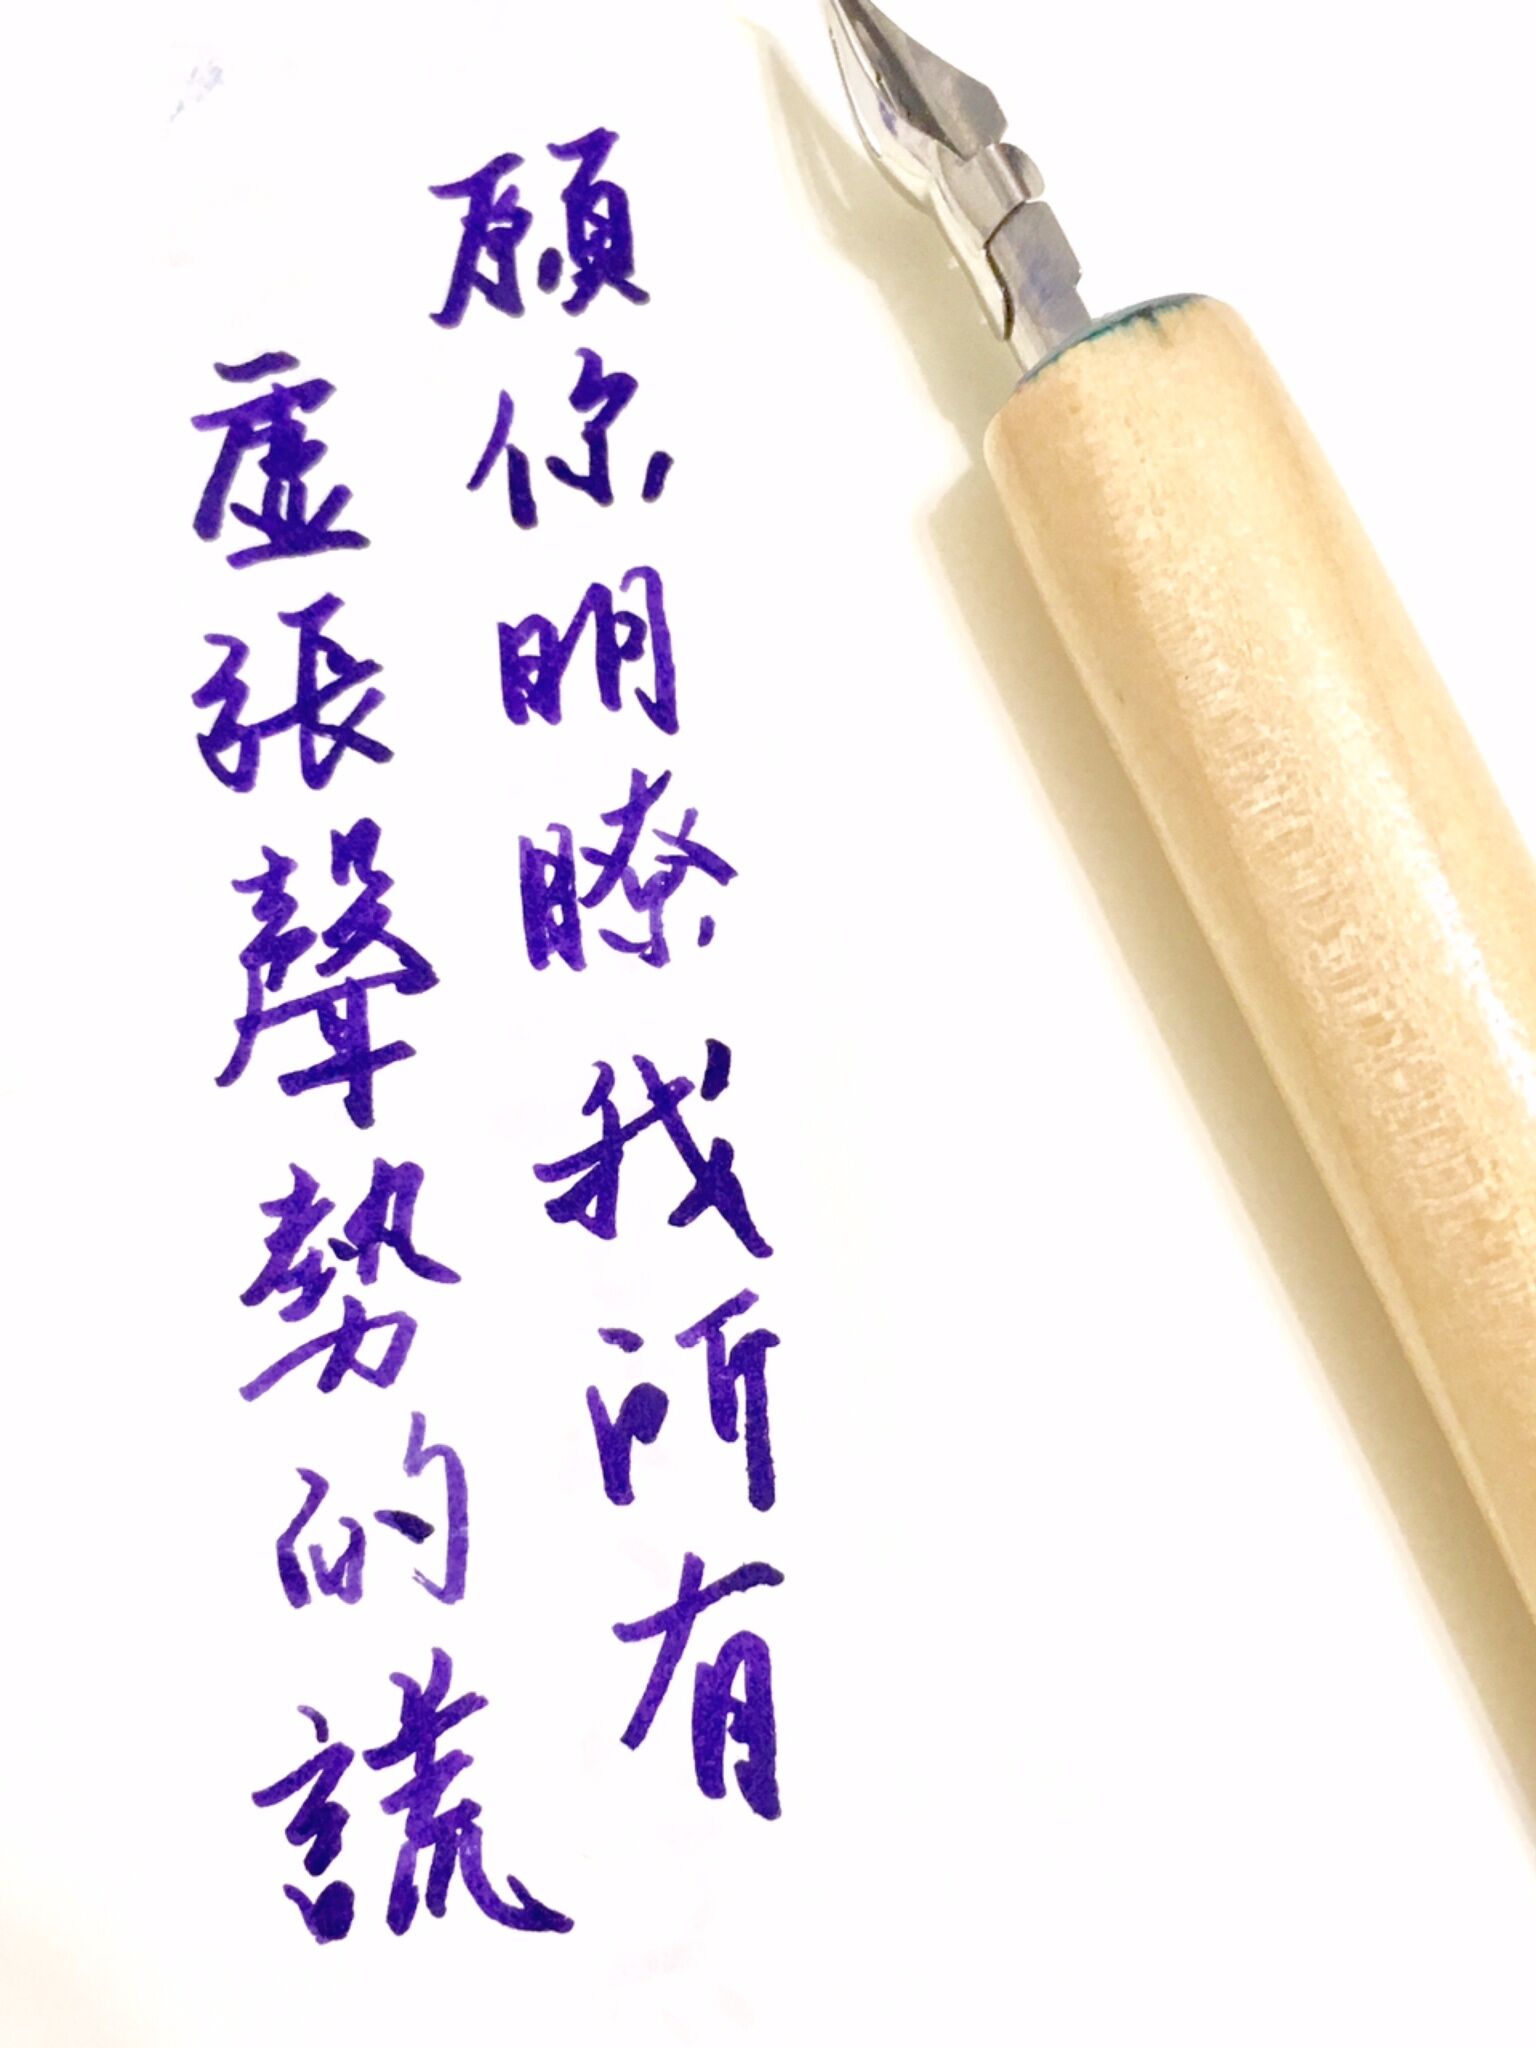 願你明瞭我所有
虛張聲勢的謊